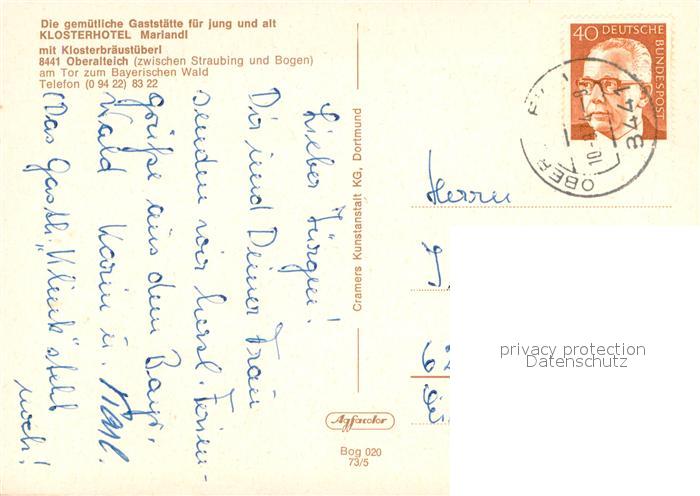 Die gemütliche Gaststätte für jung und alt
KLOSTERHOTEL Mariandl
mit Klosterbräustüberl
8441 Oberalteich (zwischen Straubing und Bogen)
am Tor zum Bayerischen Wald
Telefon (0 94 22) 83 22
Lieber Jürgen!
Dir und Deiner Frau
senden wir herzl. Ferien-
grüße aus dem Bayr.
Wald Karin u. Karl.
(Das Gasth. "Klink" steht
noch!
Cramers Kunstanstalt KG, Dortmund
Agfacolor
Bog 020
73/5
40 DEUTSCHE
BUNDESPOST
OBER
8441
Herrn
J
62
privacy protection
Datenschutz